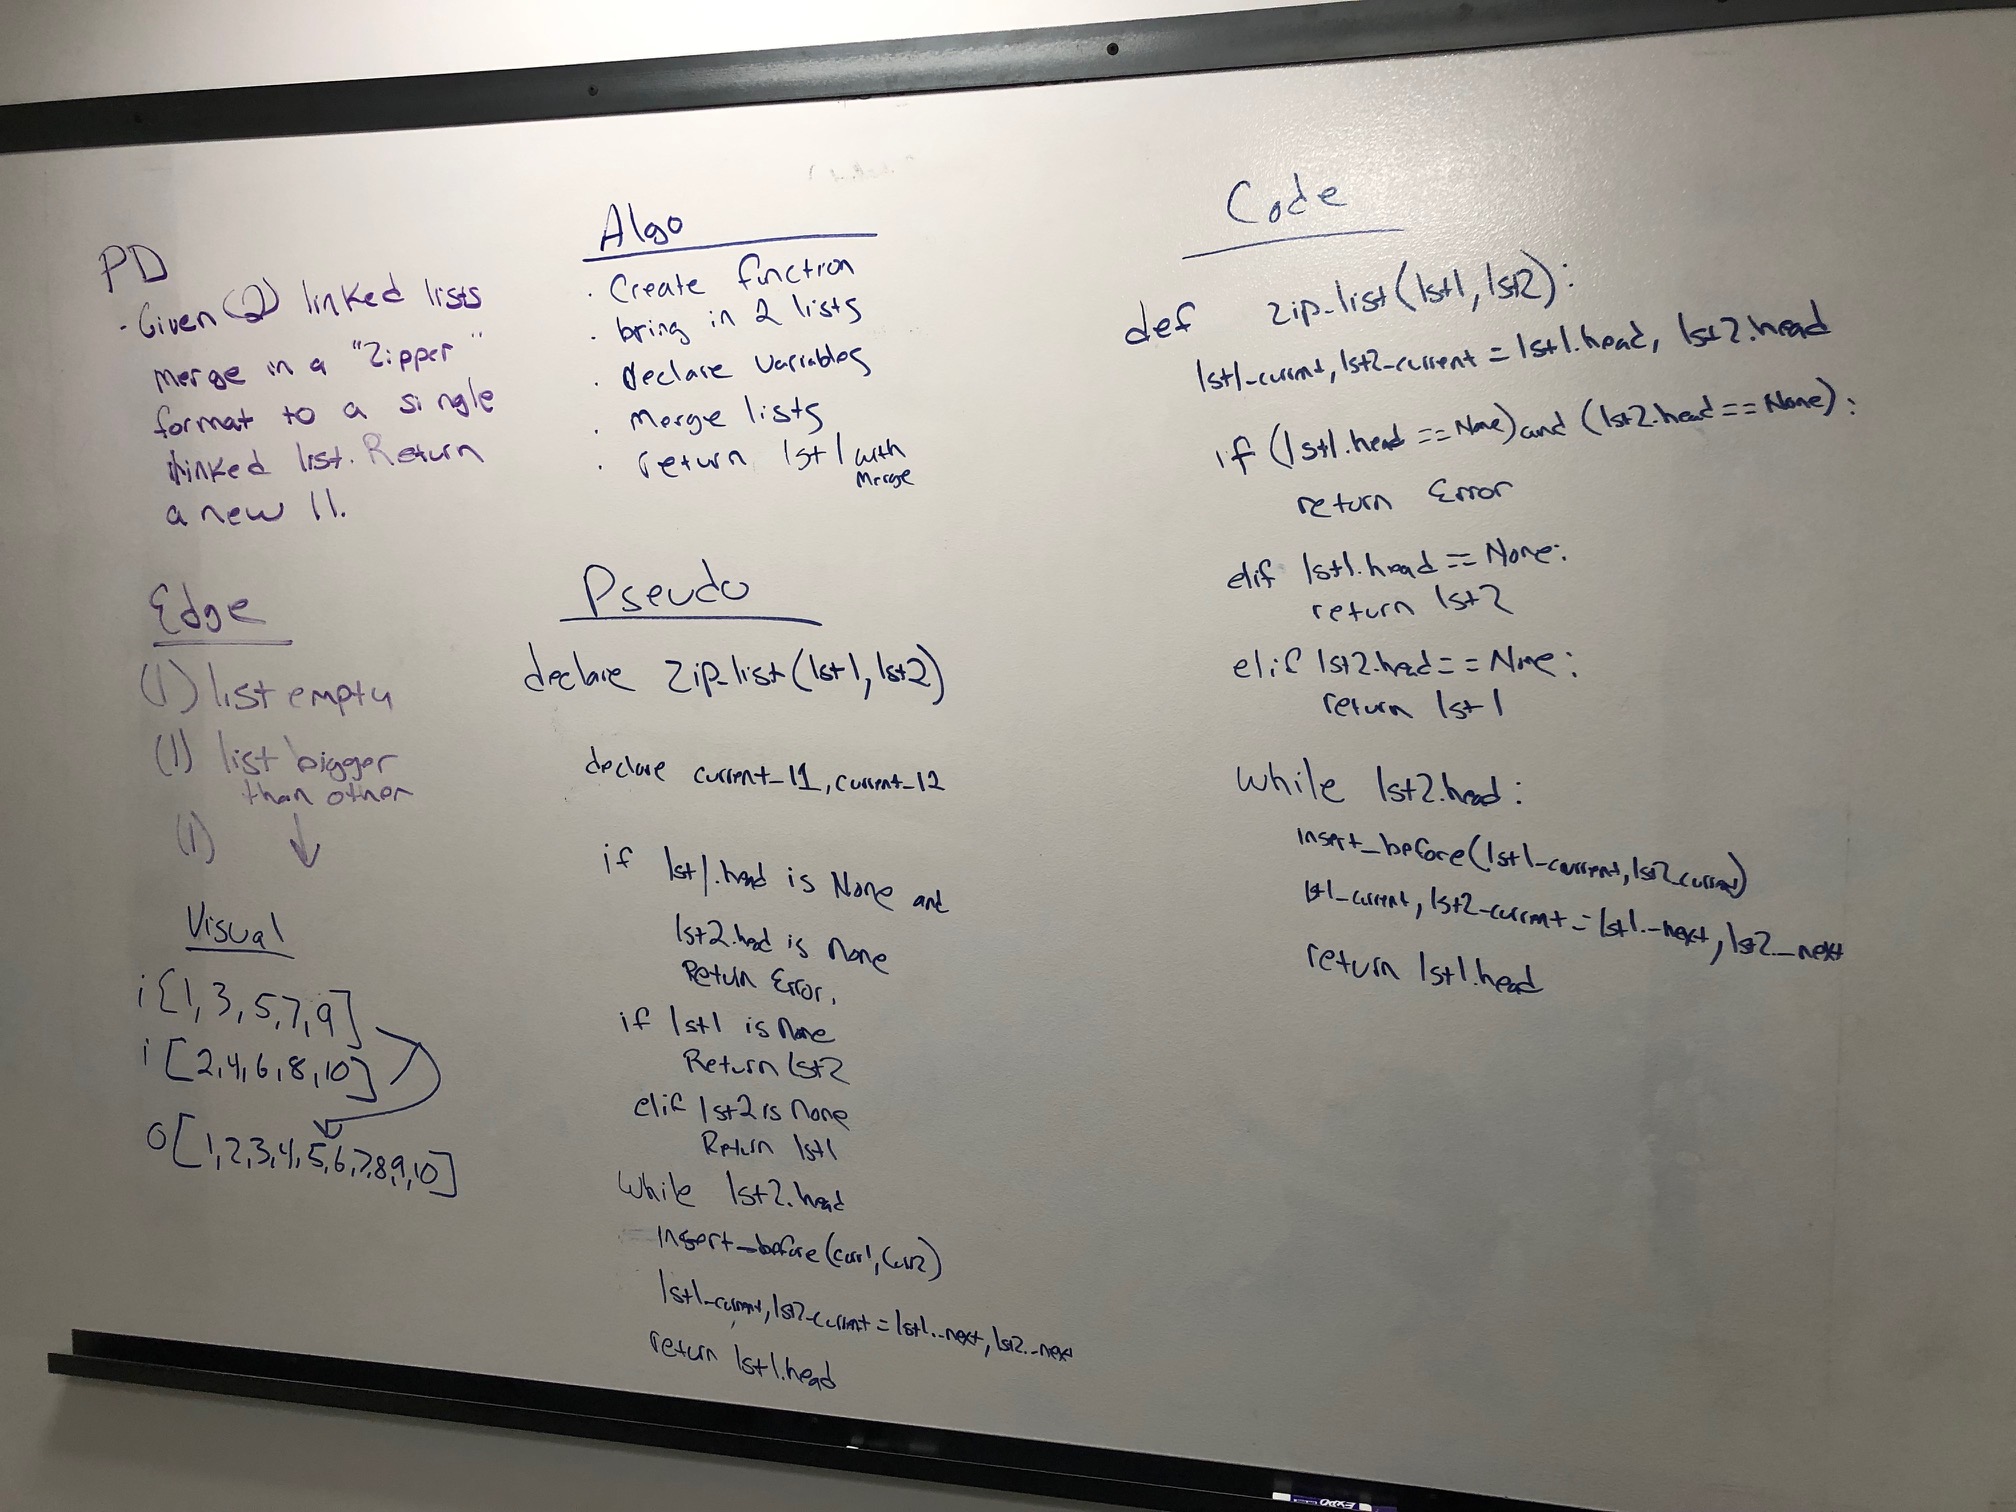 PD
- Given (2) linked lists
merge in a "Zipper"
format to a single
linked list. Return
a new ll.
Edge
(1) list empty
(1) list bigger
than other
(1) ↓
Visual
i[1, 3, 5, 7, 9]
i[2, 4, 6, 8, 10]
o[1,2,3,4,5,6,7,8,9,10]
Algo
· Create function
· bring in 2 lists
· declare variables
· Merge lists
· return lst1 with
Merge
Pseudo
declare zip_list(lst1, lst2)
declare current_l1, current_l2
if lst1.head is None and
lst2.head is None
Return Error.
if lst1 is None
Return lst2
elif lst2 is None
Return lst1
While lst2.head
insert_before(curr1, curr2)
lst1_current, lst2_current = lst1._next, lst2._next
return lst1.head
Code
def zip_list(lst1, lst2):
lst1_current, lst2_current = lst1.head, lst2.head
if (lst1.head == None) and (lst2.head == None):
return Error
elif lst1.head == None:
return lst2
elif lst2.head == None:
return lst1
While lst2.head:
insert_before(lst1_current, lst2_current)
lst1_current, lst2_current = lst1._next, lst2._next
return lst1.head
EXPO